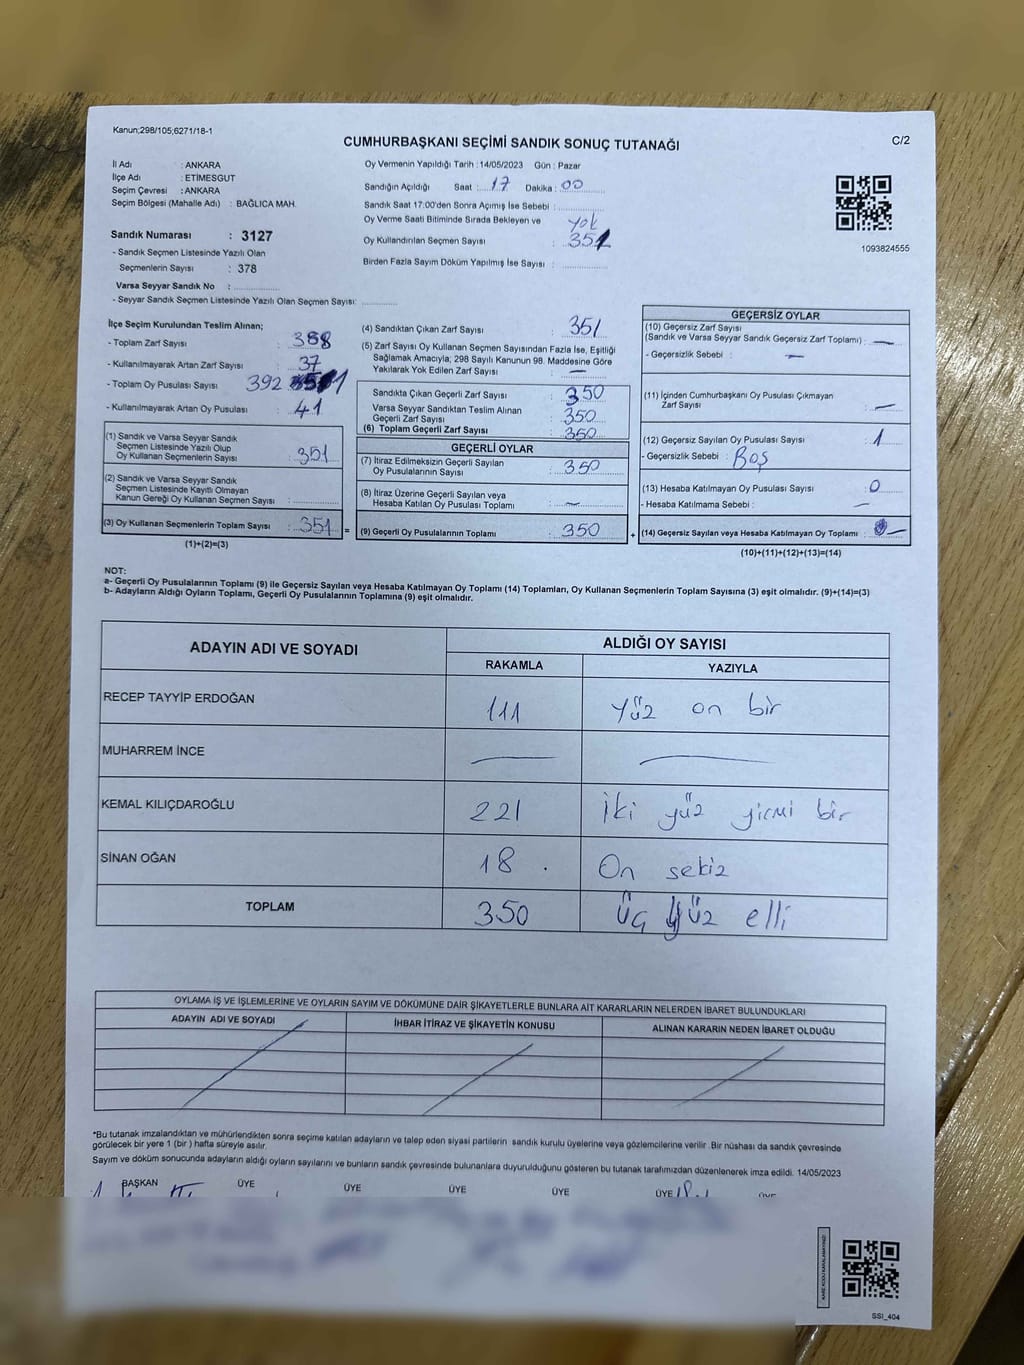 Kanun;298/105;6271/18-1
C/2
CUMHURBAŞKANI SEÇİMİ SANDIK SONUÇ TUTANAĞI
İl Adı : ANKARA
İlçe Adı : ETİMESGUT
Seçim Çevresi : ANKARA
Seçim Bölgesi (Mahalle Adı) : BAĞLICA MAH.
Sandık Numarası : 3127
- Sandık Seçmen Listesinde Yazılı Olan
Seçmenlerin Sayısı : 378
Varsa Seyyar Sandık No :
- Seyyar Sandık Seçmen Listesinde Yazılı Olan Seçmen Sayısı:
Oy Vermenin Yapıldığı Tarih : 14/05/2023 Gün : Pazar
Sandığın Açıldığı Saat : 17 Dakika : 00
Sandık Saat 17:00'den Sonra Açımış İse Sebebi :
Oy Verme Saati Bitiminde Sırada Bekleyen ve yok
Oy Kullandırılan Seçmen Sayısı : 351
Birden Fazla Sayım Döküm Yapılmış İse Sayısı :
1093824555
İlçe Seçim Kurulundan Teslim Alınan;
- Toplam Zarf Sayısı : 388
- Kullanılmayarak Artan Zarf Sayısı : 37
- Toplam Oy Pusulası Sayısı 392
- Kullanılmayarak Artan Oy Pusulası : 41
(1) Sandık ve Varsa Seyyar Sandık
Seçmen Listesinde Yazılı Olup
Oy Kullanan Seçmenlerin Sayısı : 351
(2) Sandık ve Varsa Seyyar Sandık
Seçmen Listesinde Kayıtlı Olmayan
Kanun Gereği Oy Kullanan Seçmen Sayısı :
(3) Oy Kullanan Seçmenlerin Toplam Sayısı : 351 =
(1)+(2)=(3)
(4) Sandıktan Çıkan Zarf Sayısı : 351
(5) Zarf Sayısı Oy Kullanan Seçmen Sayısından Fazla İse, Eşitliği
Sağlamak Amacıyla; 298 Sayılı Kanunun 98. Maddesine Göre
Yakılarak Yok Edilen Zarf Sayısı : —
Sandıkta Çıkan Geçerli Zarf Sayısı : 350
Varsa Seyyar Sandıktan Teslim Alınan
Geçerli Zarf Sayısı : 350
(6) Toplam Geçerli Zarf Sayısı : 350
GEÇERLİ OYLAR
(7) İtiraz Edilmeksizin Geçerli Sayılan
Oy Pusulalarının Sayısı : 350
(8) İtiraz Üzerine Geçerli Sayılan veya
Hesaba Katılan Oy Pusulası Toplamı : —
(9) Geçerli Oy Pusulalarının Toplamı : 350 +
GEÇERSİZ OYLAR
(10) Geçersiz Zarf Sayısı
(Sandık ve Varsa Seyyar Sandık Geçersiz Zarf Toplamı) : —
- Geçersizlik Sebebi : —
(11) İçinden Cumhurbaşkanı Oy Pusulası Çıkmayan
Zarf Sayısı : —
(12) Geçersiz Sayılan Oy Pusulası Sayısı : 1
- Geçersizlik Sebebi : Boş
(13) Hesaba Katılmayan Oy Pusulası Sayısı : 0
- Hesaba Katılmama Sebebi : —
(14) Geçersiz Sayılan veya Hesaba Katılmayan Oy Toplamı :
(10)+(11)+(12)+(13)=(14)
NOT:
a- Geçerli Oy Pusulalarının Toplamı (9) ile Geçersiz Sayılan veya Hesaba Katılmayan Oy Toplamı (14) Toplamları, Oy Kullanan Seçmenlerin Toplam Sayısına (3) eşit olmalıdır. (9)+(14)=(3)
b- Adayların Aldığı Oyların Toplamı, Geçerli Oy Pusulalarının Toplamına (9) eşit olmalıdır.
ADAYIN ADI VE SOYADI ALDIĞI OY SAYISI
RAKAMLA YAZIYLA
RECEP TAYYİP ERDOĞAN 111 yüz on bir
MUHARREM İNCE — —
KEMAL KILIÇDAROĞLU 221 iki yüz yirmi bir
SİNAN OĞAN 18 . On sekiz
TOPLAM 350 üç yüz elli
OYLAMA İŞ VE İŞLEMLERİNE VE OYLARIN SAYIM VE DÖKÜMÜNE DAİR ŞİKAYETLERLE BUNLARA AİT KARARLARIN NELERDEN İBARET BULUNDUKLARI
ADAYIN ADI VE SOYADI İHBAR İTİRAZ VE ŞİKAYETİN KONUSU ALINAN KARARIN NEDEN İBARET OLDUĞU
*Bu tutanak imzalandıktan ve mühürlendikten sonra seçime katılan adayların ve talep eden siyasi partilerin sandık kurulu üyelerine veya gözlemcilerine verilir .Bir nüshası da sandık çevresinde
görülecek bir yere 1 (bir ) hafta süreyle asılır.
Sayım ve döküm sonucunda adayların aldığı oyların sayılarını ve bunların sandık çevresinde bulunanlara duyurulduğunu gösteren bu tutanak tarafımızdan düzenlenerek imza edildi. 14/05/2023
BAŞKAN ÜYE ÜYE ÜYE ÜYE ÜYE
SSI_404